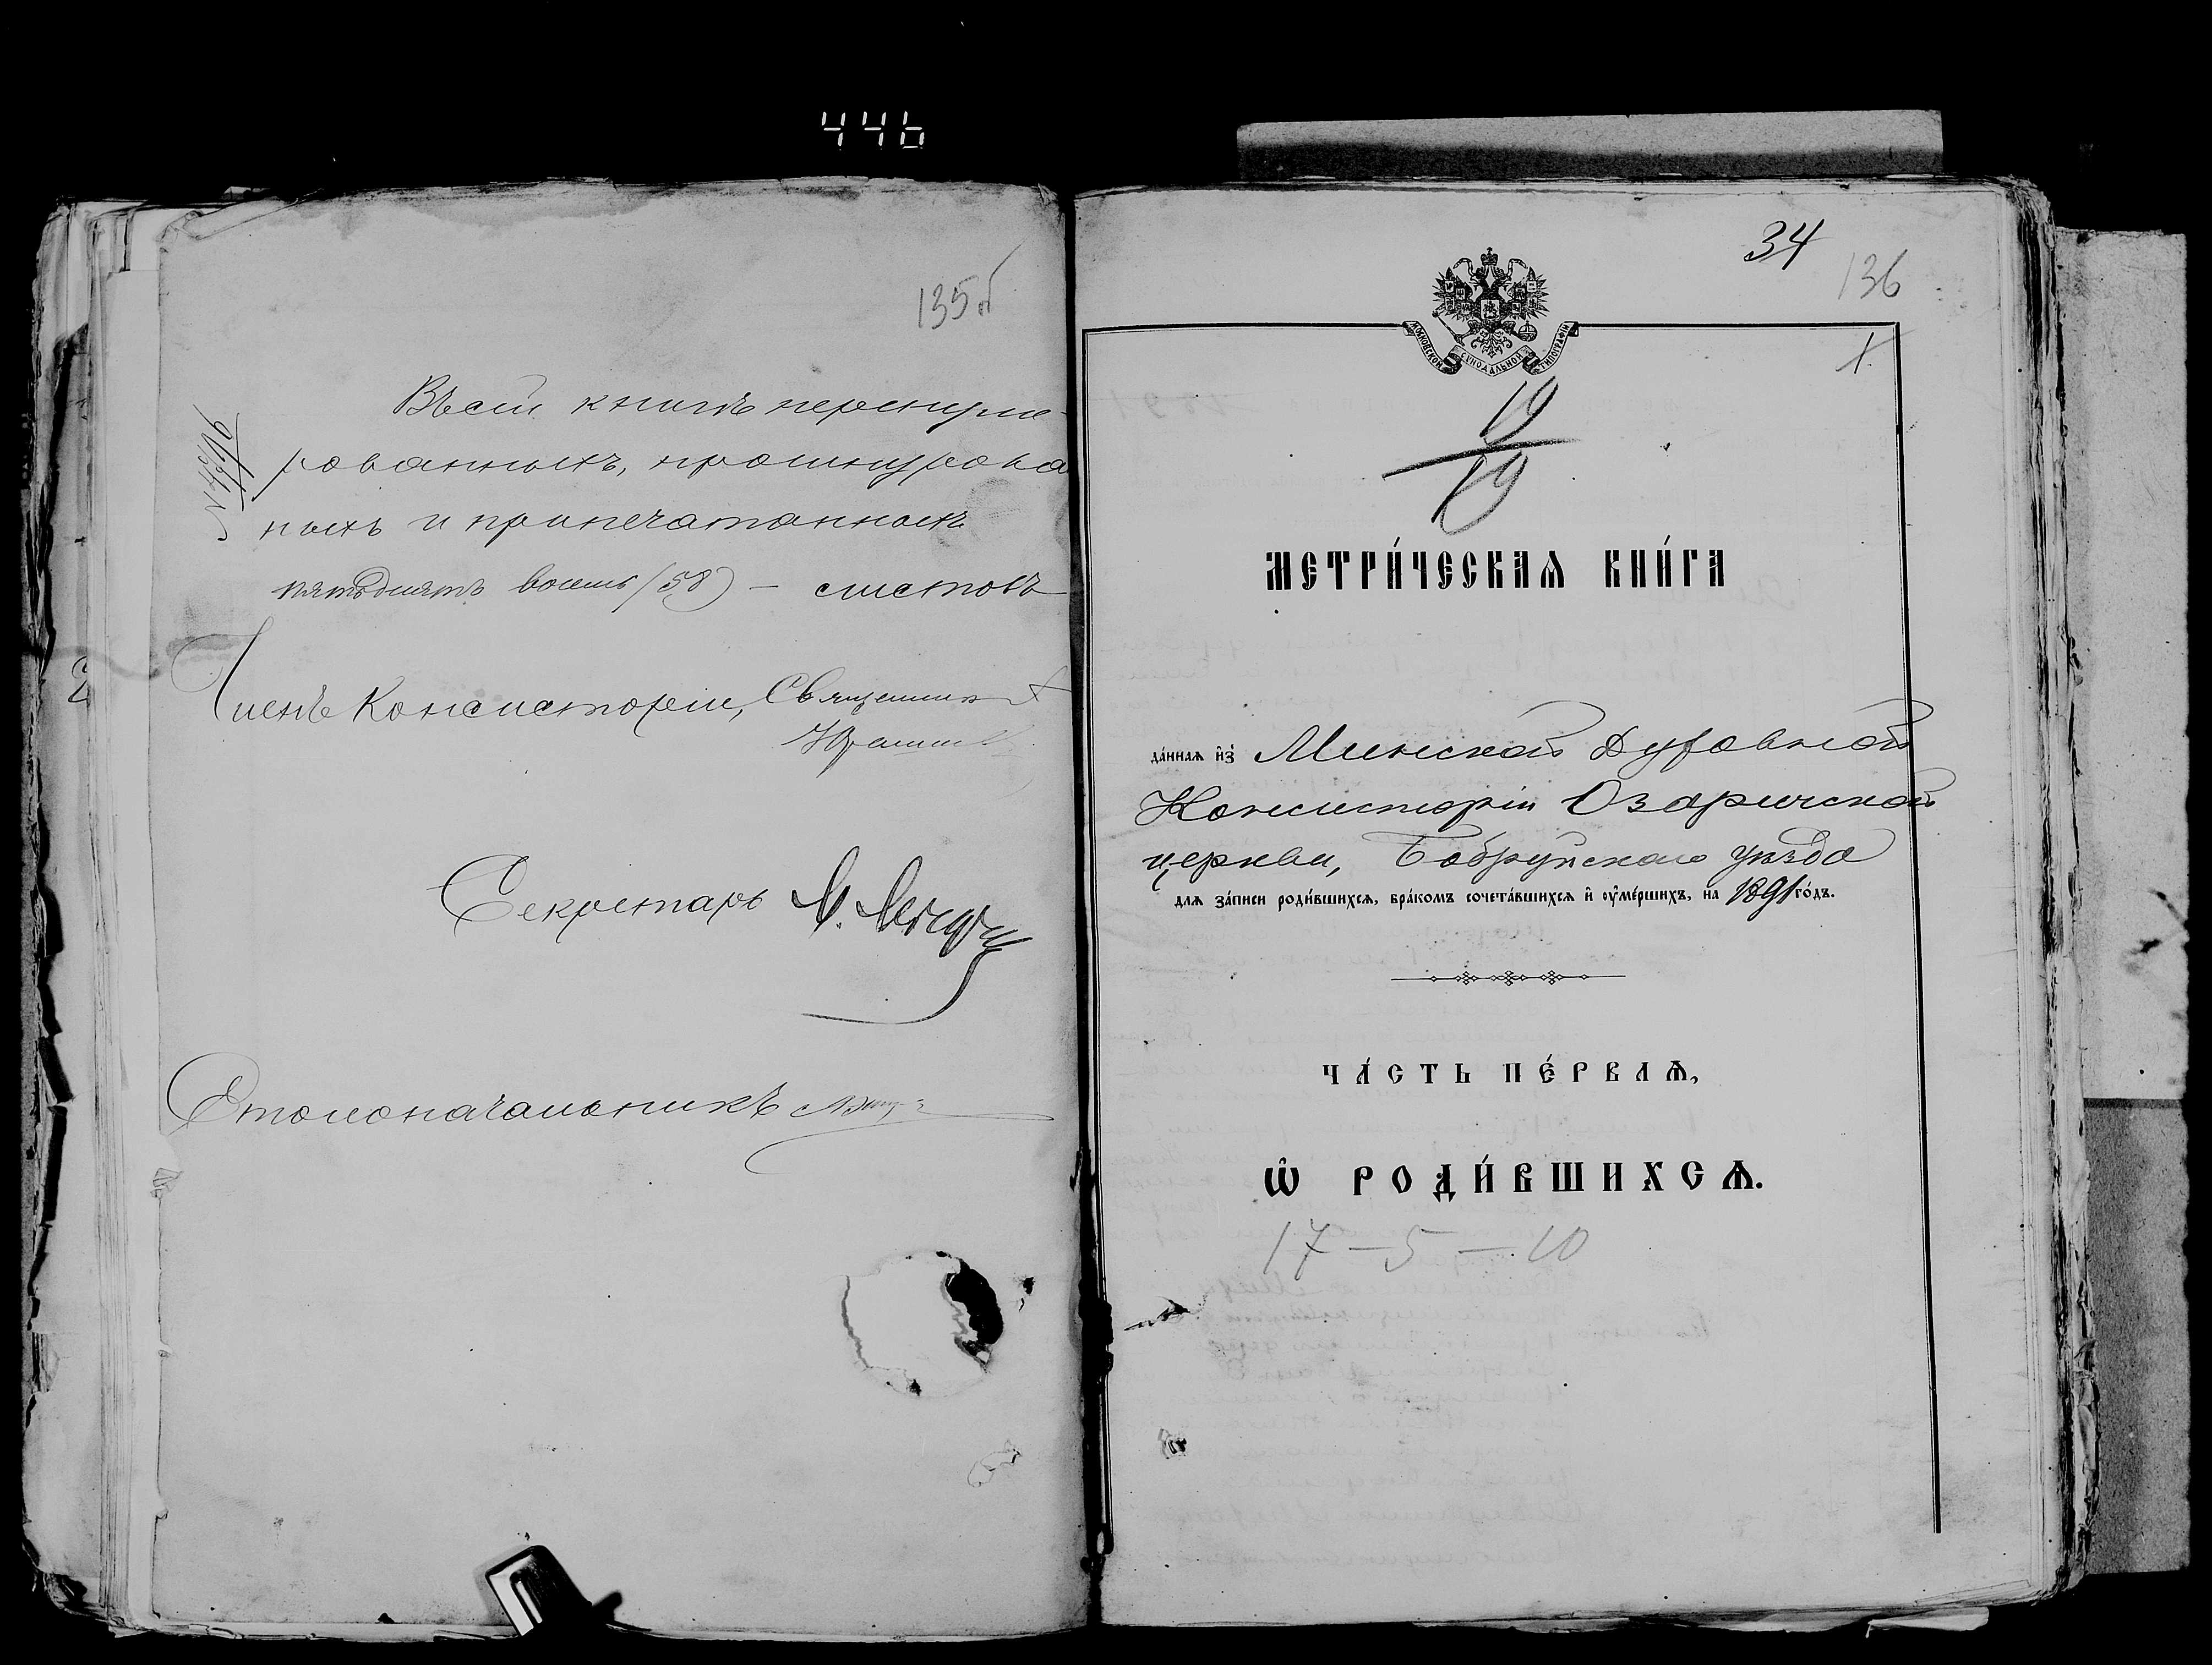 446
135об
Въ сей книгѣ перенуме-
рованныхъ, прошнурова
ныхъ и припечатанныхъ
пятьдесятъ восемь (58) — листовъ
Членъ Консисторіи, Священникъ
Секретарь
Столоначальникъ
34
136
МОСКОВСКОЙ СѴНОДАЛЬНОЙ ТИПОГРАФІИ
19
19
МЕТРИ́ЧЕСКАѦ КНИ́ГА
да́ннаѧ и҆з̾ Минской Духовной
Консисторіи Озаричской
церкви, Бобруйскаго уѣзда
длѧ за́писи роди́вшихсѧ, бра́комъ сочета́вшихсѧ и҆ ѹ҆ме́ршихъ, на 1891 го́дъ.
ЧА́СТЬ ПЕ́РВАѦ,
Ѡ҆ РОДИ́ВШИХСѦ.
17 — 5 — 10